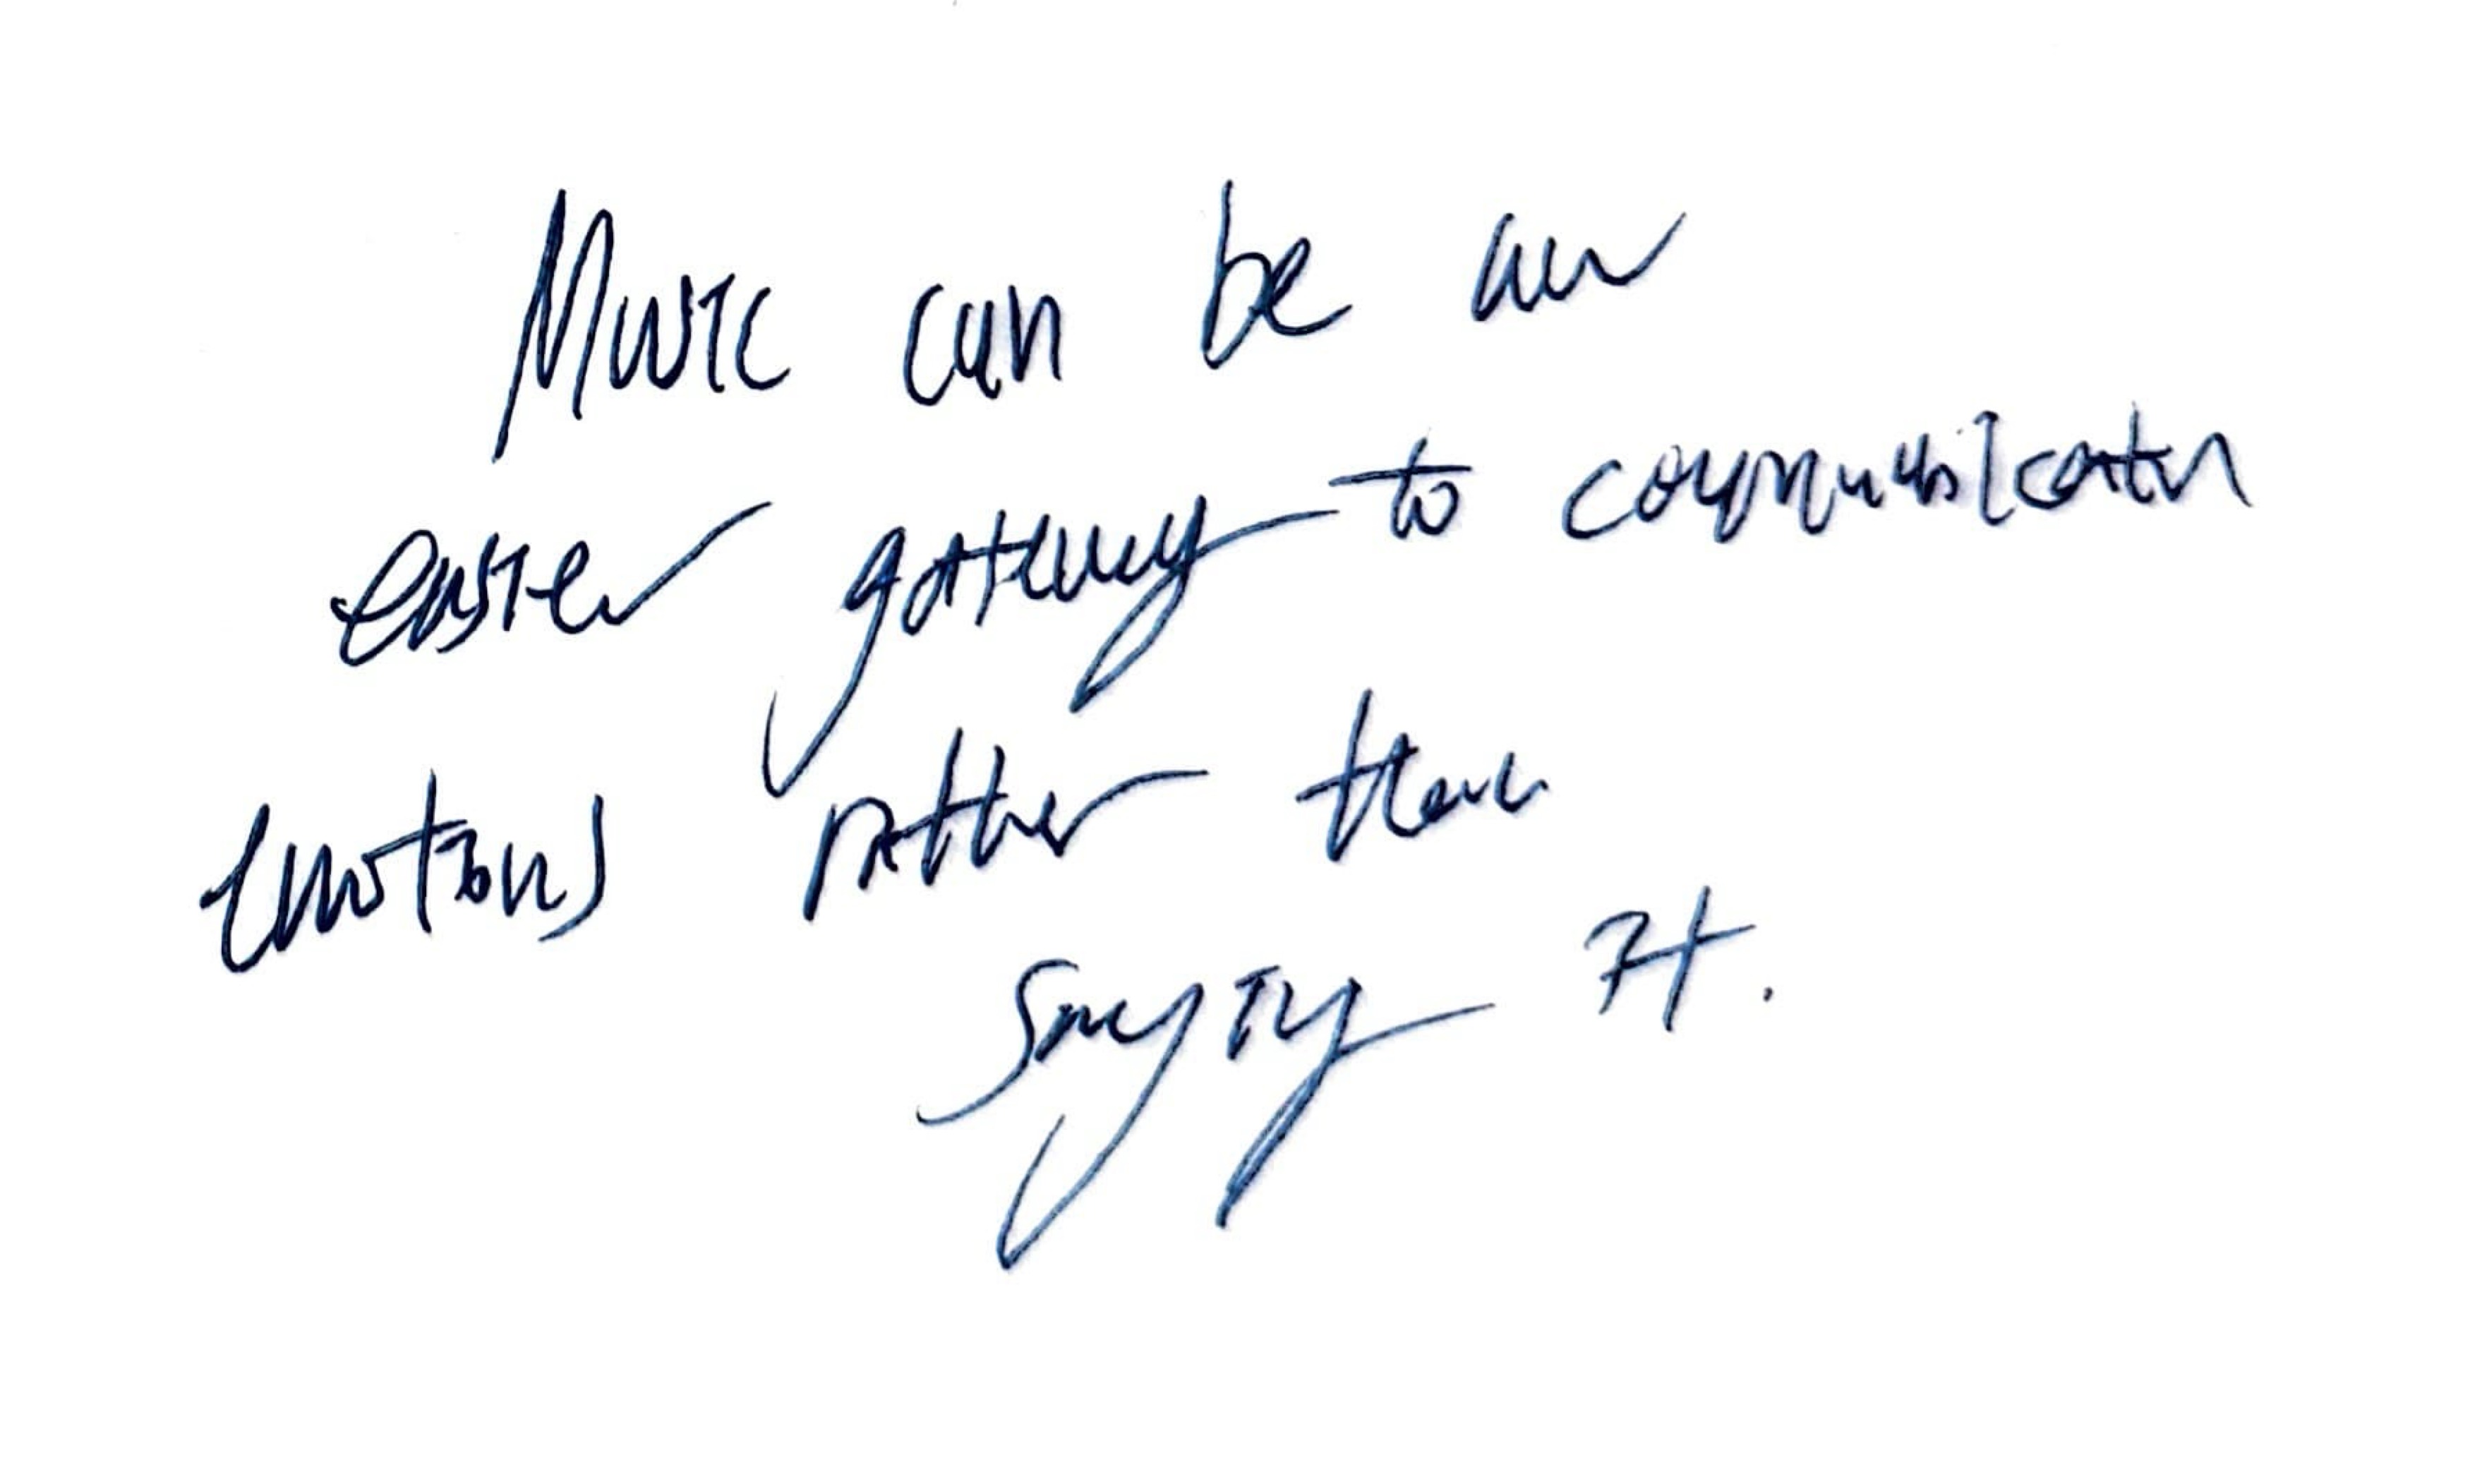 Music can be an
easier gateway to communication
emotions rather than
saying it.